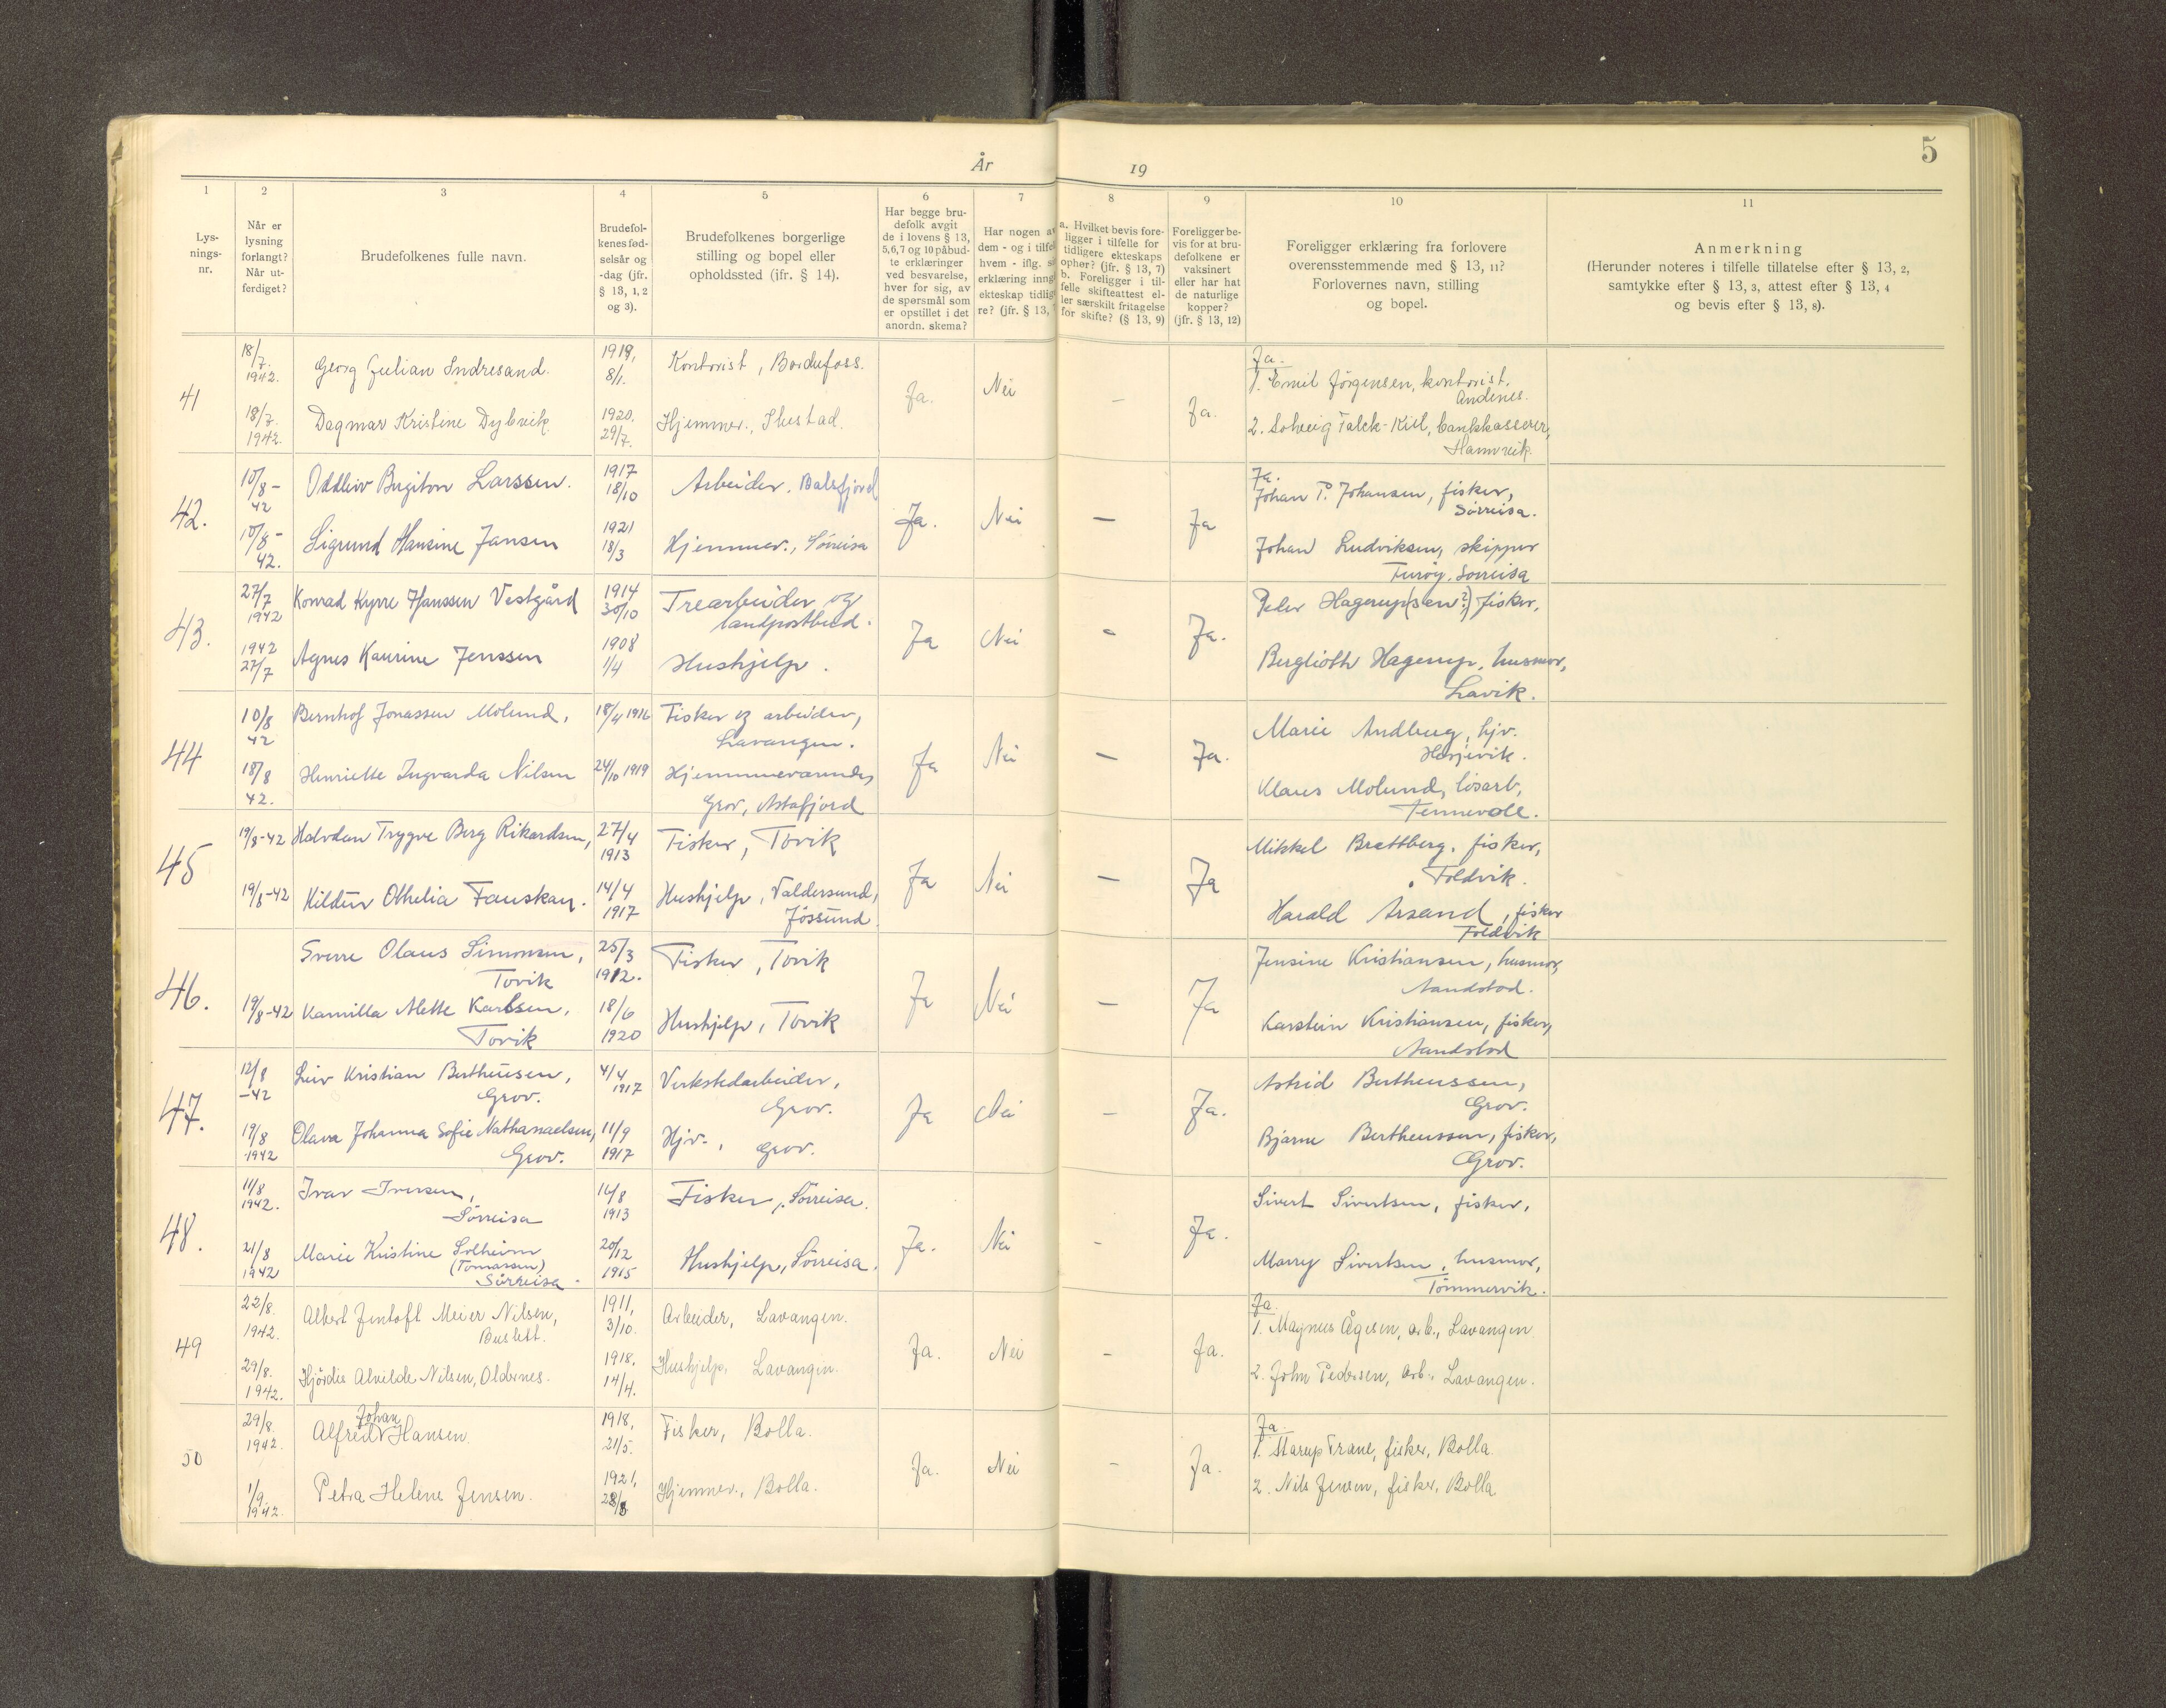 År 19
5
1 2 3 4 5 6 7 8 9 10 11
Lys-
nings-
nr.
Når er
lysning
forlangt?
Når ut-
ferdiget?
Brudefolkenes fulle navn.
Brudefol-
kenes fød-
selsår og
-dag (jfr.
§ 13, 1, 2
og 3).
Brudefolkenes borgerlige
stilling og bopel eller
opholdssted (jfr. § 14).
Har begge bru-
defolk avgit
de i lovens § 13,
5,6,7 og 10 påbud-
te erklæringer
ved besvarelse,
hver for sig, av
de spørsmål som
er opstillet i det
anordn. skema?
Har nogen av
dem - og i tilfel
hvem - iflg. s
erklæring inng
ekteskap tidlig
re? (jfr. § 13,
a. Hvilket bevis fore-
ligger i tilfelle for
tidligere ekteskaps
ophør? (jfr. § 13, 7)
b. Foreligger i til-
felle skifteattest el-
ler særskilt fritagelse
for skifte? (§ 13, 9)
Foreligger be-
vis for at bru-
defolkene er
vaksinert
eller har hat
de naturlige
kopper?
(jfr. § 13, 12)
Foreligger erklæring fra forlovere
overensstemmende med § 13, 11?
Forlovernes navn, stilling
og bopel.
Anmerkning
(Herunder noteres i tilfelle tillatelse efter § 13, 2,
samtykke efter § 13, 3, attest efter § 13, 4
og bevis efter § 13, 8).
41
18/7.
1942.
Georg Julian Indresand.
1919,
8/1.
Kontorist, Bardufoss.
18/7.
1942.
Dagmar Kristine Dybvik.
1920.
29/7.
Hjemmev., Ibestad.
Ja.
Nei
-
Ja.
Ja.
1. Emil Jörgensen, kontorist,
Andenes.
2. Solveig Falck-Kiil, bankkasserer,
Hamnvik.
42.
10/8 -
42
Oddleiv Birgiton Larssen.
1917
18/10
Arbeider. Balsfjord
10/8 -
42.
Sigrund Hansine Jansen
1921
18/3
Hjemmev., Sörreisa
Ja.
Nei
—
Ja
Ja.
Johan P. Johansen, fisker,
Sörreisa.
Johan Ludviksen, skipper
Furöy, Sörreisa
43.
27/7
1942
Konrad Kyrre Hanssen Vestgård
1914
30/10
Trearbeider og
landpostbud.
1942
27/7
Agnes Kaurine Jenssen
1908
1/4
Hushjelp.
Ja
Nei
-
Ja.
Peder Hagerup(sen?) fisker,
Berglioth Hagerup, husmor,
Lavik.
44
10/8
42
Bernhof Jonassen Molund,
18/4 1916
Fisker og arbeider,
Lavangen.
18/8
42.
Henriette Ingvarda Nilsen
24/10 1919
Hjemmeværende,
Grov, Astafjord
Ja
Nei
—
Ja.
Marie Andberg, hjv.
Hesjevik.
Klaus Molund, lösarb,
Tennevoll.
45
19/8-42
Halvdan Trygve Berg Rikardsen,
27/4
1913
Fisker, Tovik
19/8-42
Hildur Othelia Fauskan.
14/4
1917
Hushjelp, Valdersund,
Jössund.
Ja
Nei
—
Ja
Mikkel Brattberg, fisker,
Foldvik.
Harald Årsand, fisker
Foldvik
46.
Sverre Olaus Simonsen,
Tovik
25/3
1912.
Fisker, Tovik
19/8-42
Kamilla Alette Karlsen,
Tovik
18/6
1920
Hushjelp, Tovik
Ja
Nei
—
Ja
Jensine Kristiansen, husmor,
Aandstad.
Karstein Kristiansen, fisker,
Aandstad
47.
12/8
-42
Leiv Kristian Bertheusen,
Grov.
4/4
1917
Verkstedarbeider,
Grov.
19/8
1942
Olava Johanna Sofie Nathanaelsen,
Grov.
11/9
1917
Hjv., Grov.
Ja
Nei
-
Ja.
Astrid Bertheussen,
Grov.
Bjarne Bertheussen, fisker,
Grov.
48.
11/8
1942.
Ivar Iversen,
Sörreisa
16/8
1913
Fisker, Sörreisa.
21/8
1942
Marie Kristine Solheim
(Tomassen)
Sörreisa.
20/12
1915
Hushjelp, Sörreisa.
Ja.
Nei
-
Ja.
Sivert Sivertsen, fisker,
Marry Sivertsen, husmor,
Tömmervik.
49
22/8.
1942.
Albert Jentoft Meier Nilsen,
Buslett.
1911,
3/10.
Arbeider, Lavangen.
29/8.
1942.
Hjördis Alvilde Nilsen, Oldernes.
1918,
14/4.
Hushjelp, Lavangen.
Ja.
Nei
-
Ja.
Ja.
1. Magnus Ågesen, arb., Lavangen
2. John Pedersen, arb., Lavangen.
50
29/8.
1942.
Johan
Alfred Hansen.
1918,
21/5.
Fisker, Bolla.
1/9.
1942.
Petra Helene Jensen.
1921,
28/8
Hjemmev., Bolla.
Ja.
Nei
-
Ja.
Ja.
1. Trane, fisker, Bolla.
2. Nils Jensen, fisker, Bolla